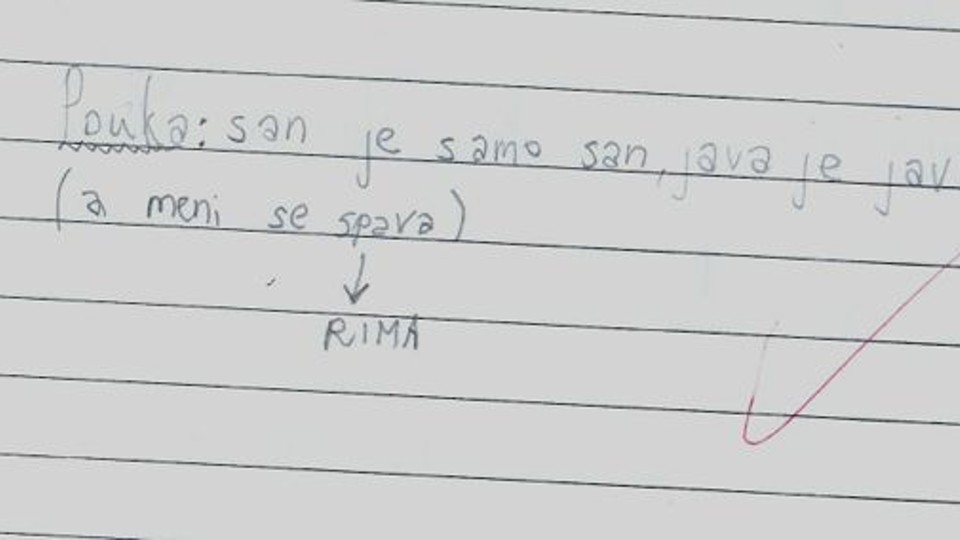 Pouka: san je samo san, java je jav
(a meni se spava)
↓
RIMA